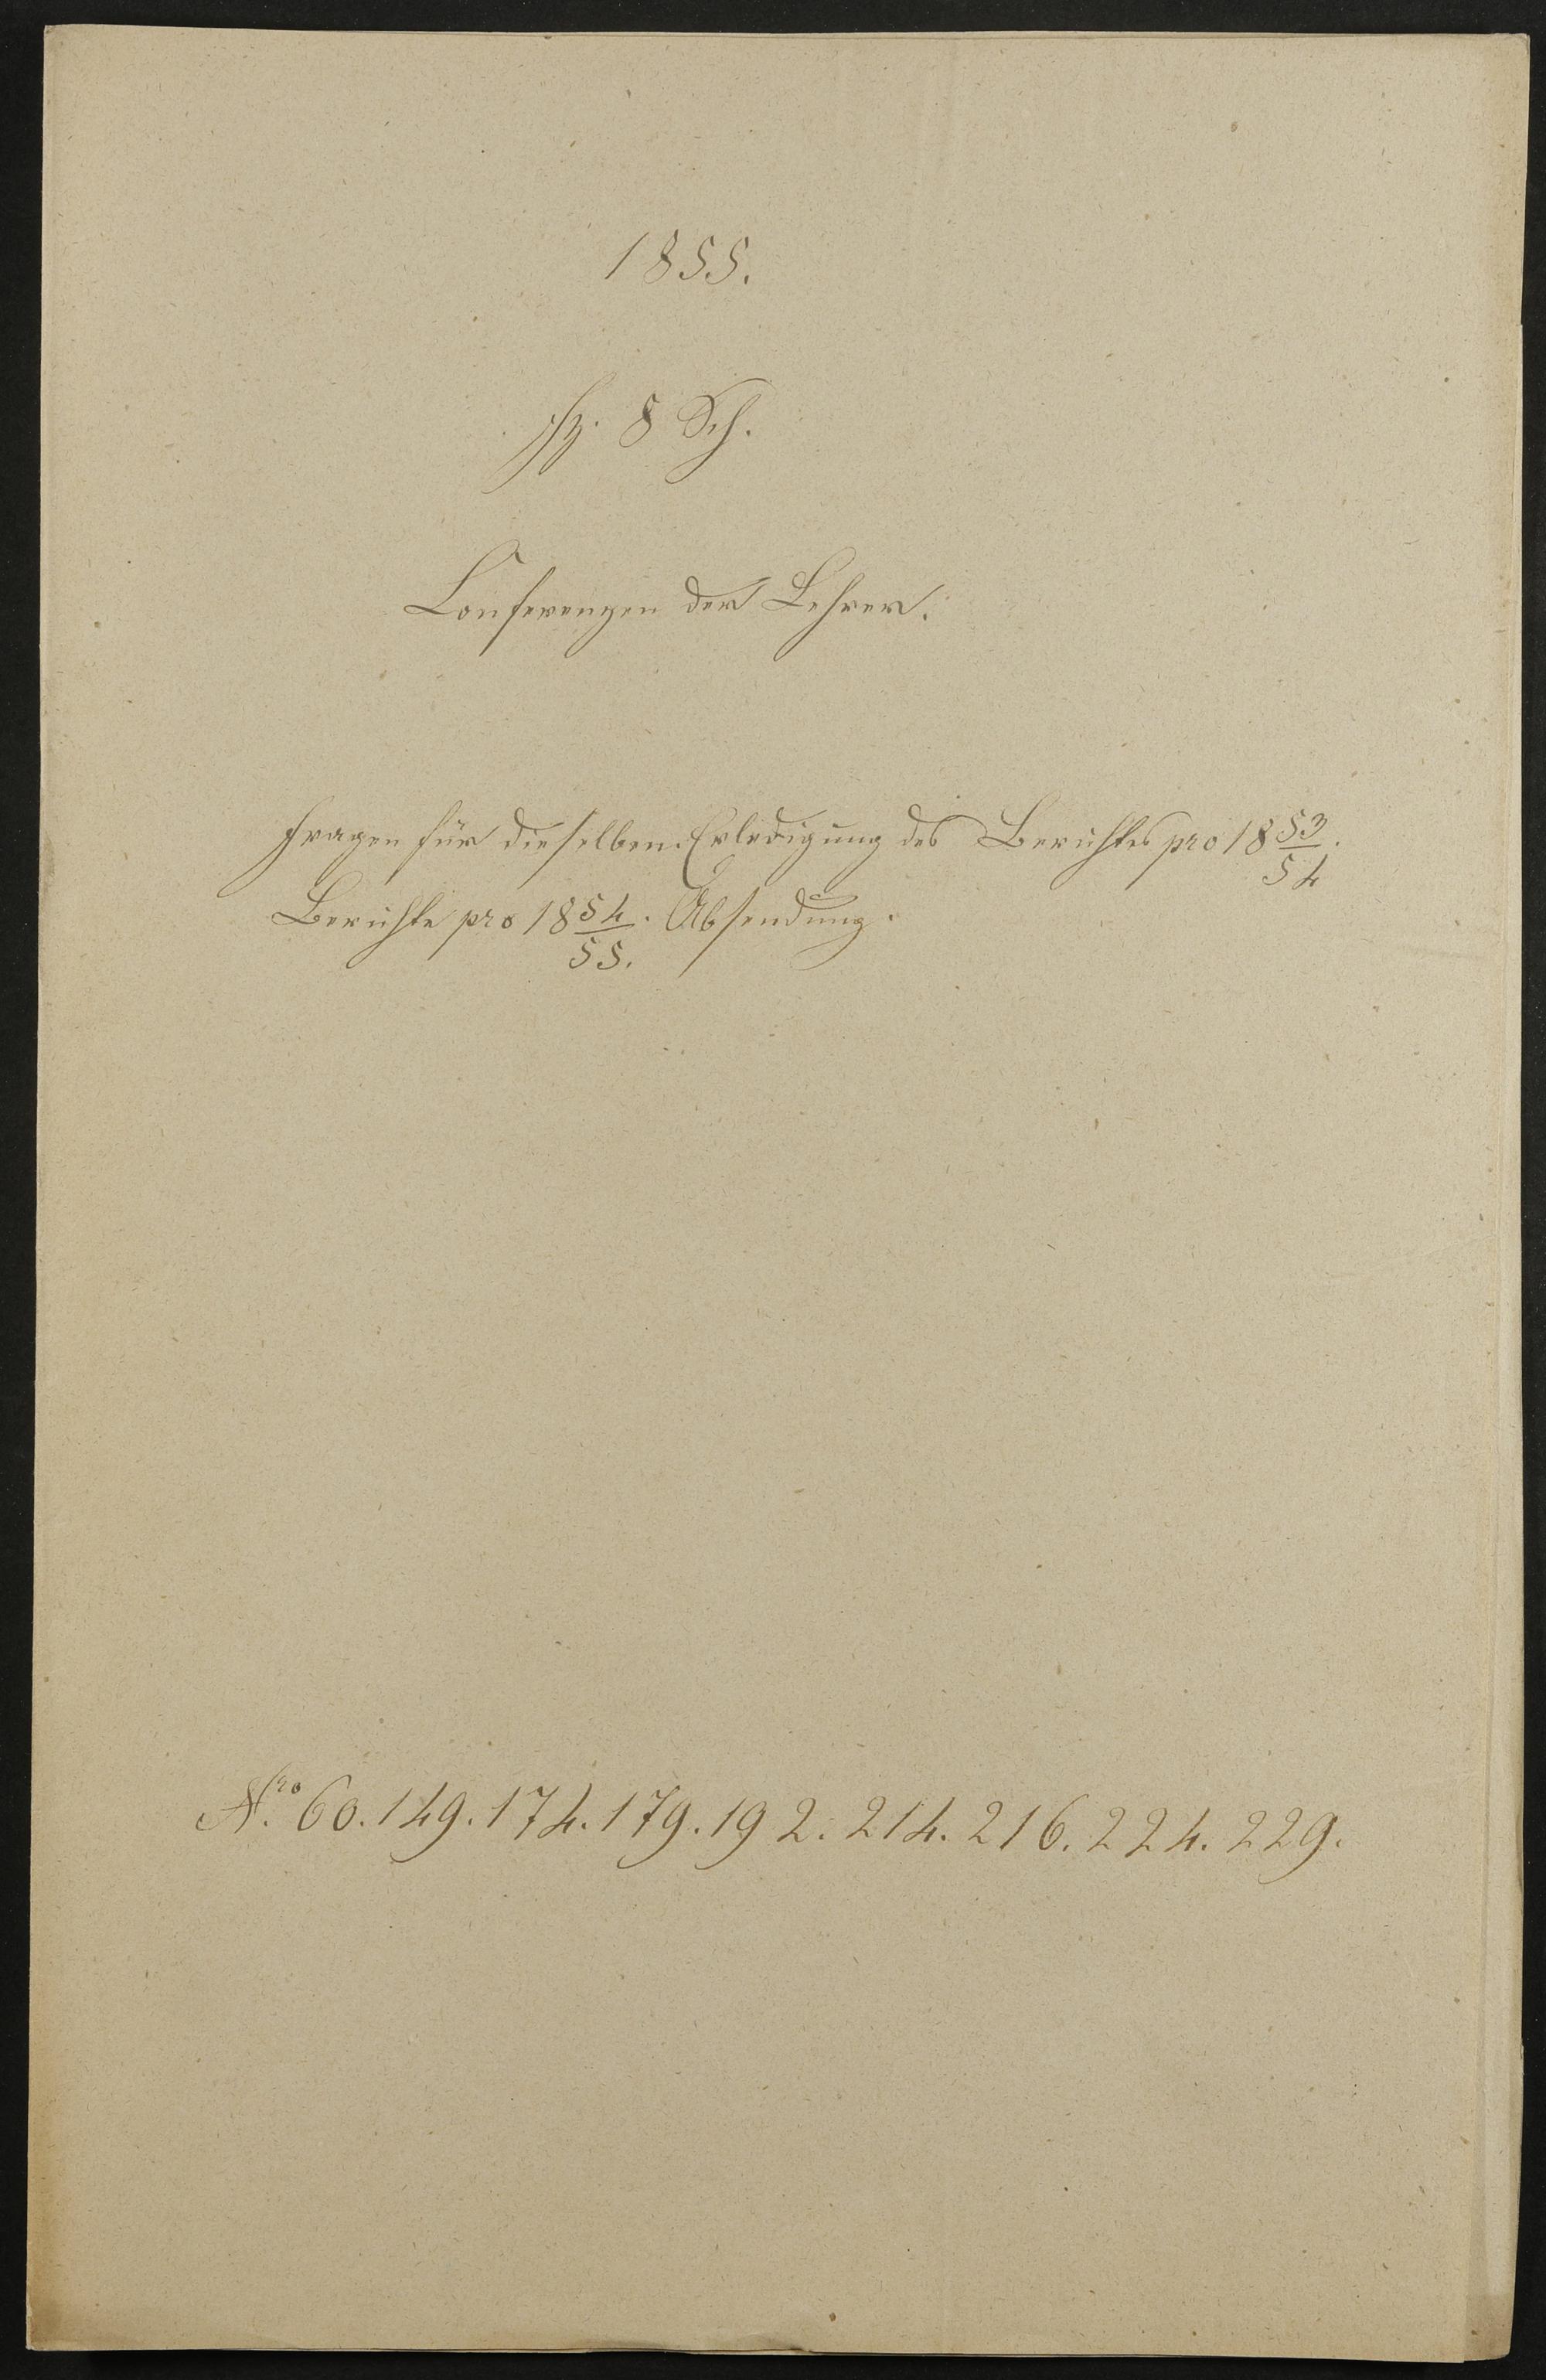 1855.
fz. 8 Sch.
Conferenzen der Lehrer.
Fragen für dieselben. Erledigung des Berichtes pro 18 53/54.
Berichte pro 18 54/55. Absendung.
Nro 60. 149. 174. 179. 192. 214. 216. 224. 229.